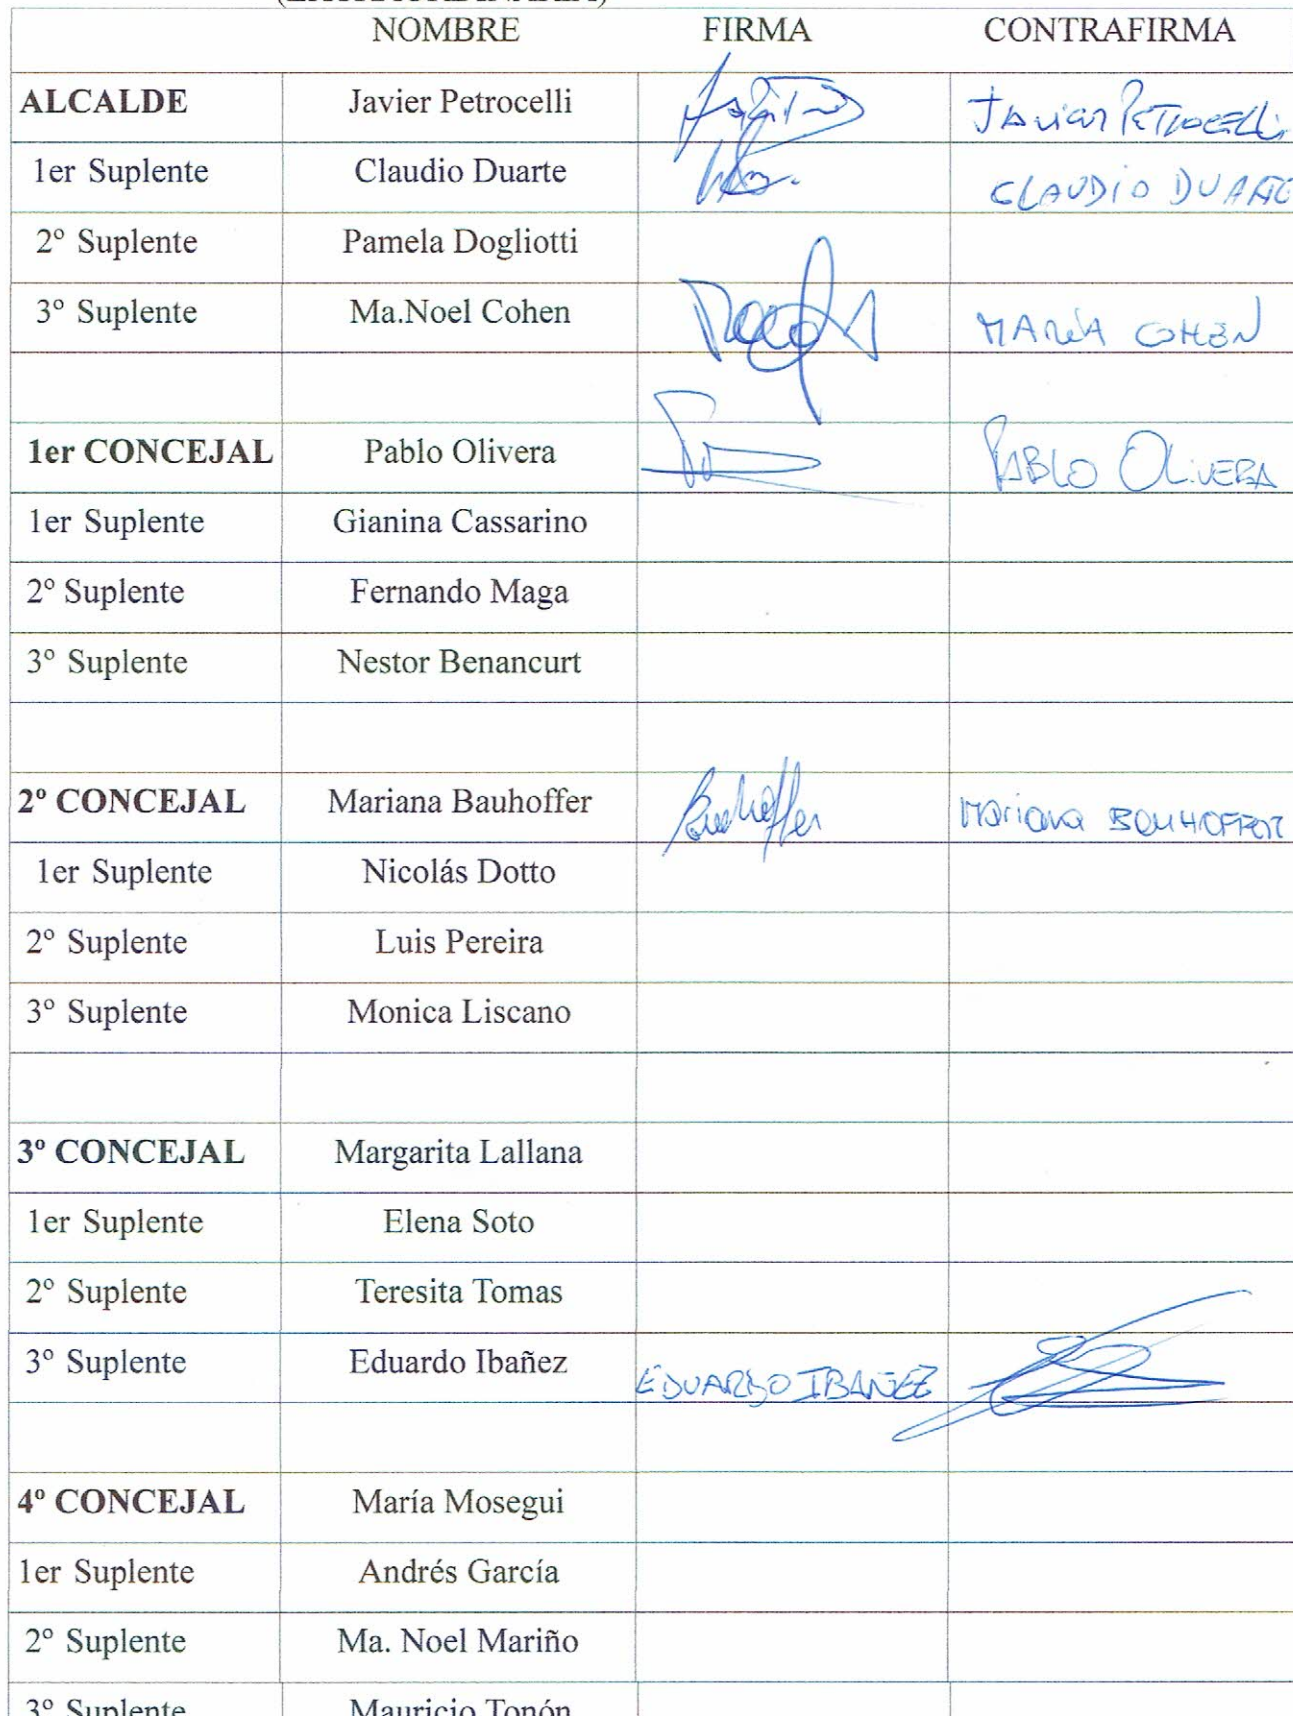 (EXTRAORDINARIA)
NOMBRE FIRMA CONTRAFIRMA
ALCALDE Javier Petrocelli Javier Petrocelli
1er Suplente Claudio Duarte CLAUDIO DUARTE
2º Suplente Pamela Dogliotti
3º Suplente Ma.Noel Cohen MARÍA COHEN
1er CONCEJAL Pablo Olivera PABLO OLIVERA
1er Suplente Gianina Cassarino
2º Suplente Fernando Maga
3º Suplente Nestor Benancurt
2º CONCEJAL Mariana Bauhoffer Bauhoffer Mariana BAUHOFFER
1er Suplente Nicolás Dotto
2º Suplente Luis Pereira
3º Suplente Monica Liscano
3º CONCEJAL Margarita Lallana
1er Suplente Elena Soto
2º Suplente Teresita Tomas
3º Suplente Eduardo Ibañez EDUARDO IBAÑEZ
4º CONCEJAL María Mosegui
1er Suplente Andrés García
2º Suplente Ma. Noel Mariño
3º Suplente Mauricio Tonón